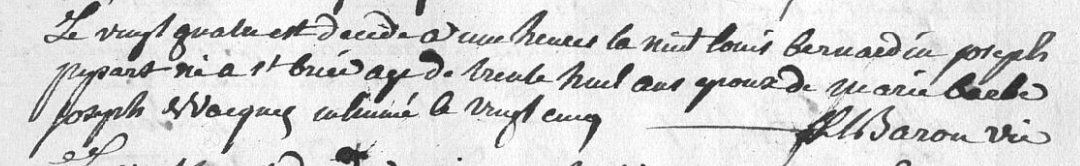 Le vingt quatre est decede a une heures la nuit louis bernardin joseph
pepart né a st brice age de trente huit ans epoux de marie barbe
joseph Wacquez inhumé le vingt cinq
Baron vic